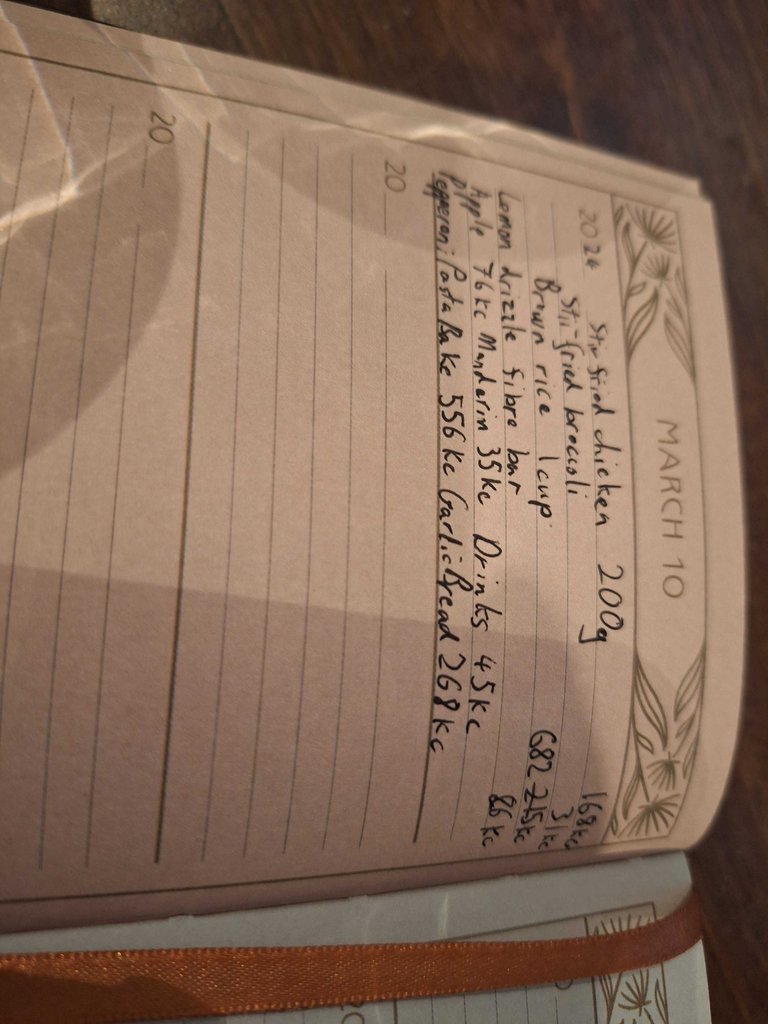 MARCH 10
2024 Stir fried chicken 200g 168kc
Stir-fried broccoli 31kc
Brown rice 1 cup 682 215kc
Lemon drizzle fibre bar 86kc
Apple 76kc Mandarin 35kc Drinks 45kc
Pepperoni Pasta Bake 556kc Garlic Bread 268kc
20
20